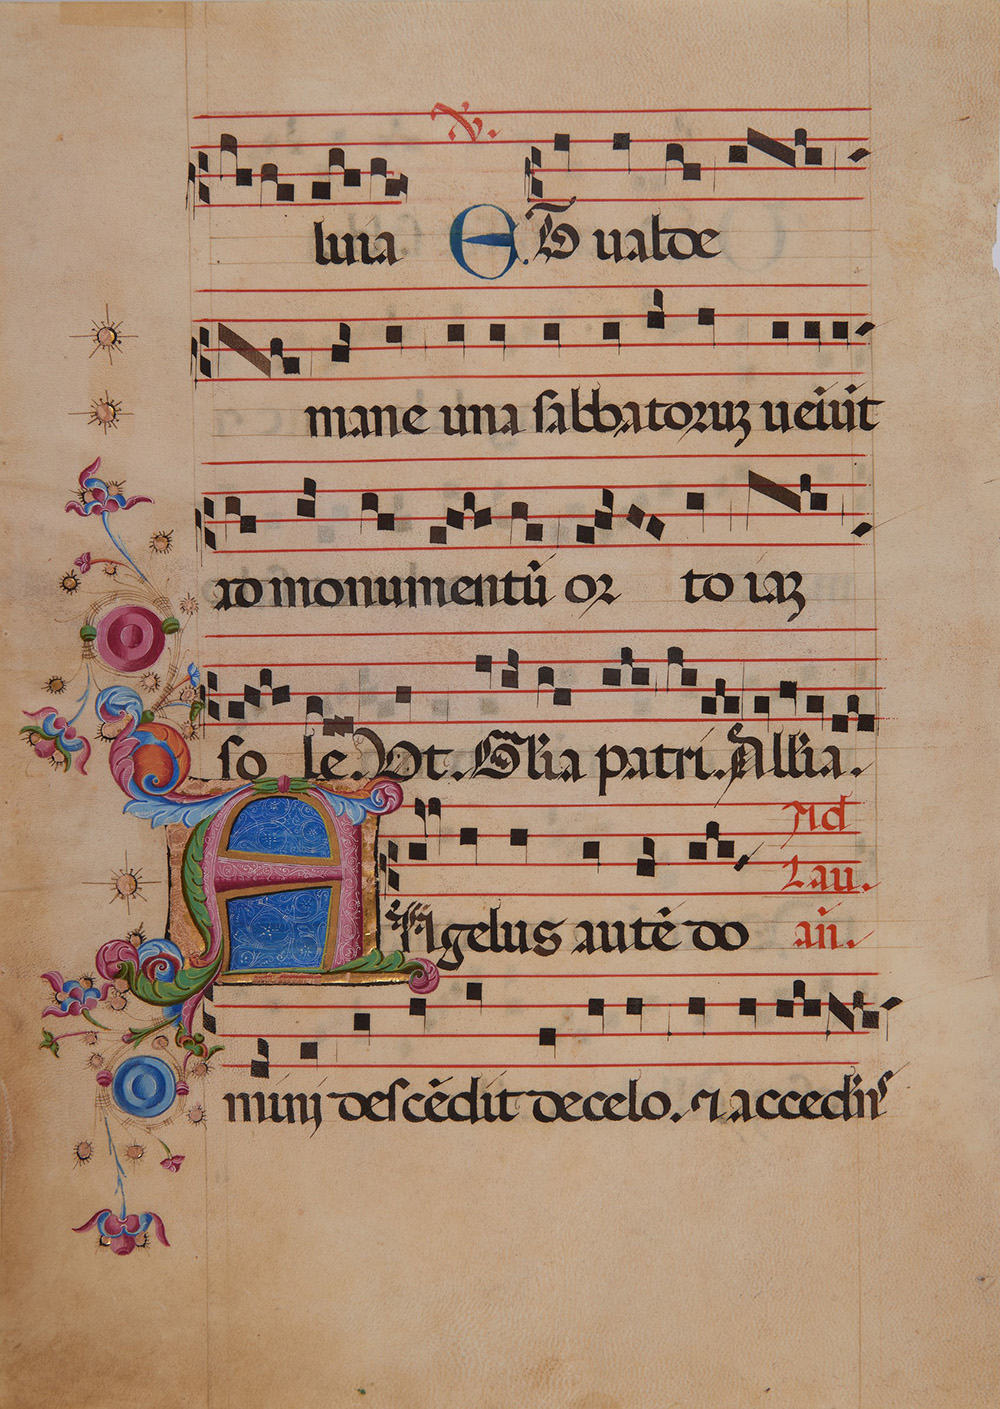 V.
luia ET ualde
mane una sabbatoruz ueiūt
ad monumentū or to iaz
so le. Vt. Glia patri. Allia.
Ad
Lau.
ANgelus autē do añ.
mini descēdit de celo. ⁊ accedēs